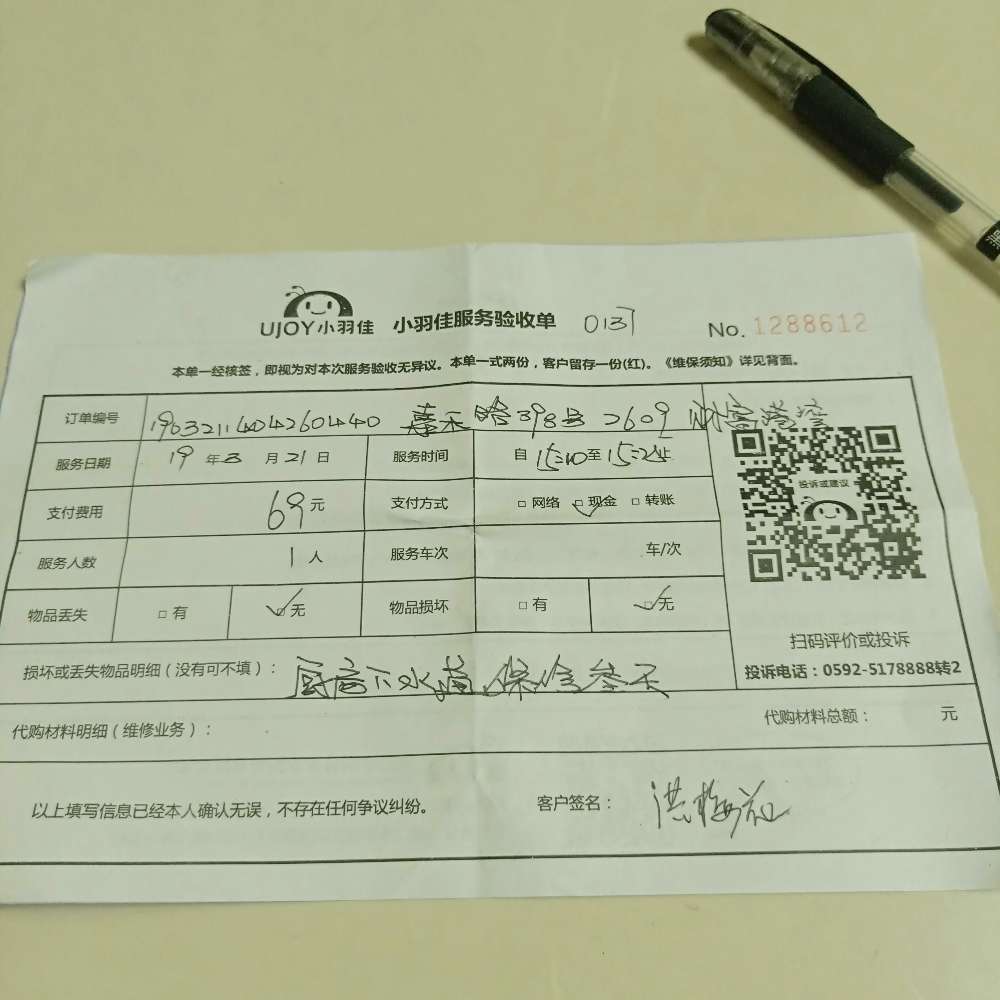 UJOY小羽佳 小羽佳服务验收单 0137 No. 1288612
本单一经核签，即视为对本次服务验收无异议。本单一式两份，客户留存一份(红)。《维保须知》详见背面。
订单编号 1903211404260440 嘉禾路398号 2609
服务日期 19 年 3 月 21 日 服务时间 自 15:10 至 15:25 止
支付费用 69 元 支付方式 □ 网络 ☑ 现金 □ 转账
服务人数 1 人 服务车次 车/次
物品丢失 □ 有 ☑ 无 物品损坏 □ 有 ☑ 无
投诉或建议
扫码评价或投诉
投诉电话：0592-5178888转2
损坏或丢失物品明细（没有可不填）： 厨房下水道 保修叁天
代购材料明细（维修业务）： 代购材料总额： 元
以上填写信息已经本人确认无误，不存在任何争议纠纷。 客户签名： 洪梅